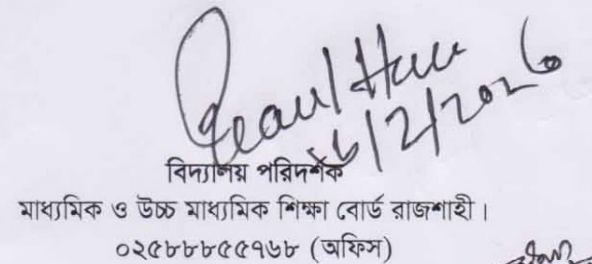 ২৬/2/2026
বিদ্যালয় পরিদর্শক
মাধ্যমিক ও উচ্চ মাধ্যমিক শিক্ষা বোর্ড রাজশাহী।
০২৫৮৮৮৫৫৭৬৮ (অফিস)